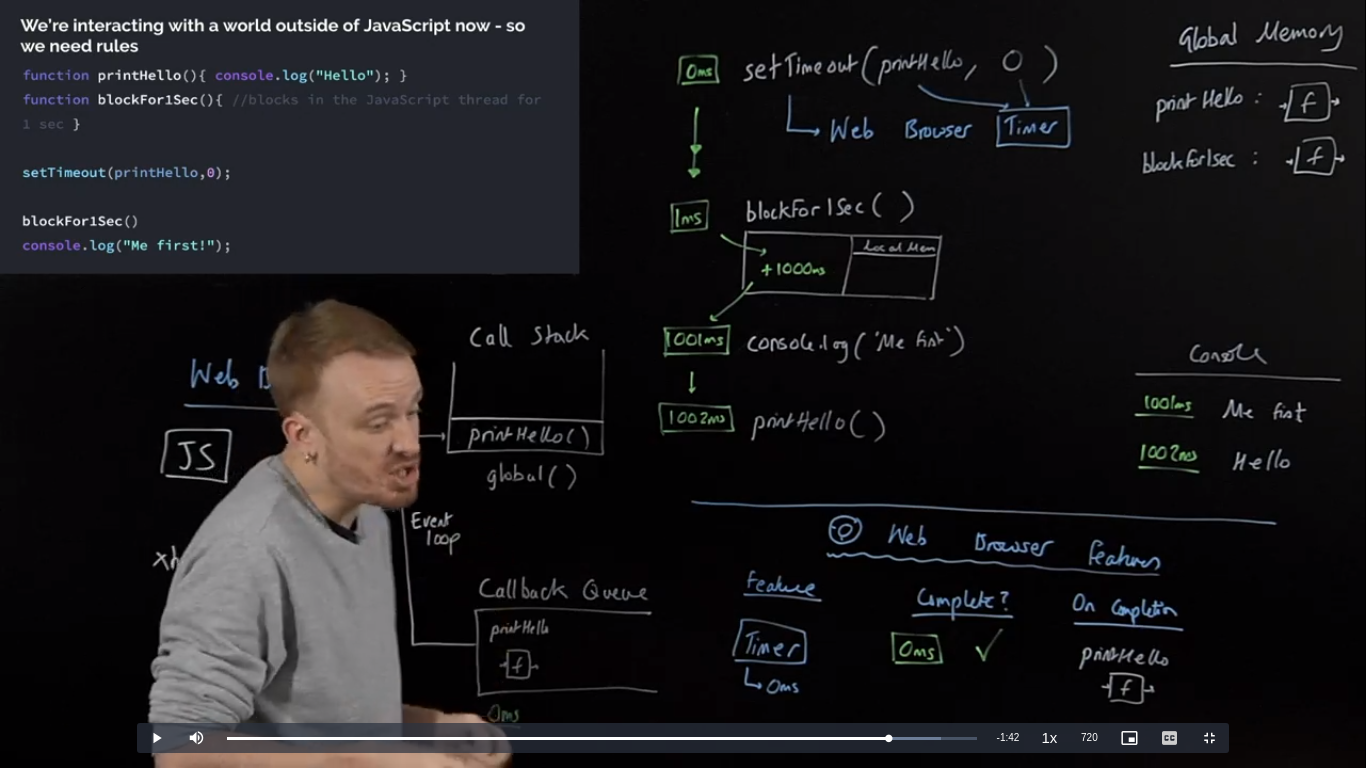 We're interacting with a world outside of JavaScript now - so
we need rules
function printHello(){ console.log("Hello"); }
function blockFor1Sec(){ //blocks in the JavaScript thread for
1 sec }
setTimeout(printHello,0);
blockFor1Sec()
console.log("Me first!");
0ms setTimeout(printHello, 0)
Web Browser Timer
1ms blockFor1Sec( )
Local Mem
+1000ms
1001ms console.log('Me first')
1002ms printHello( )
Global Memory
printHello : f
blockFor1sec : f
Console
1001ms Me first
1002ms Hello
Web
JS
Call Stack
printHello( )
global( )
Event
loop
Callback Queue
printHello
f
0ms
Web Browser Features
Feature Complete? On Completion
Timer 0ms ✓ printHello
0ms f
-1:42 1x 720 CC